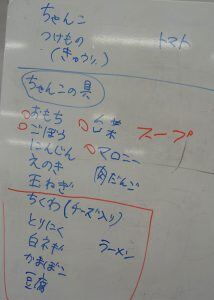 ちゃんこ
つけもの
(きゅうり)
トマト
ちゃんこの具
おもち
ごぼう
にんじん
えのき
玉ねぎ
白菜
マロニー
肉だんご
スープ
ちくわ(チーズ入り)
とりにく
白ネギ
かまぼこ
豆腐
ラーメン